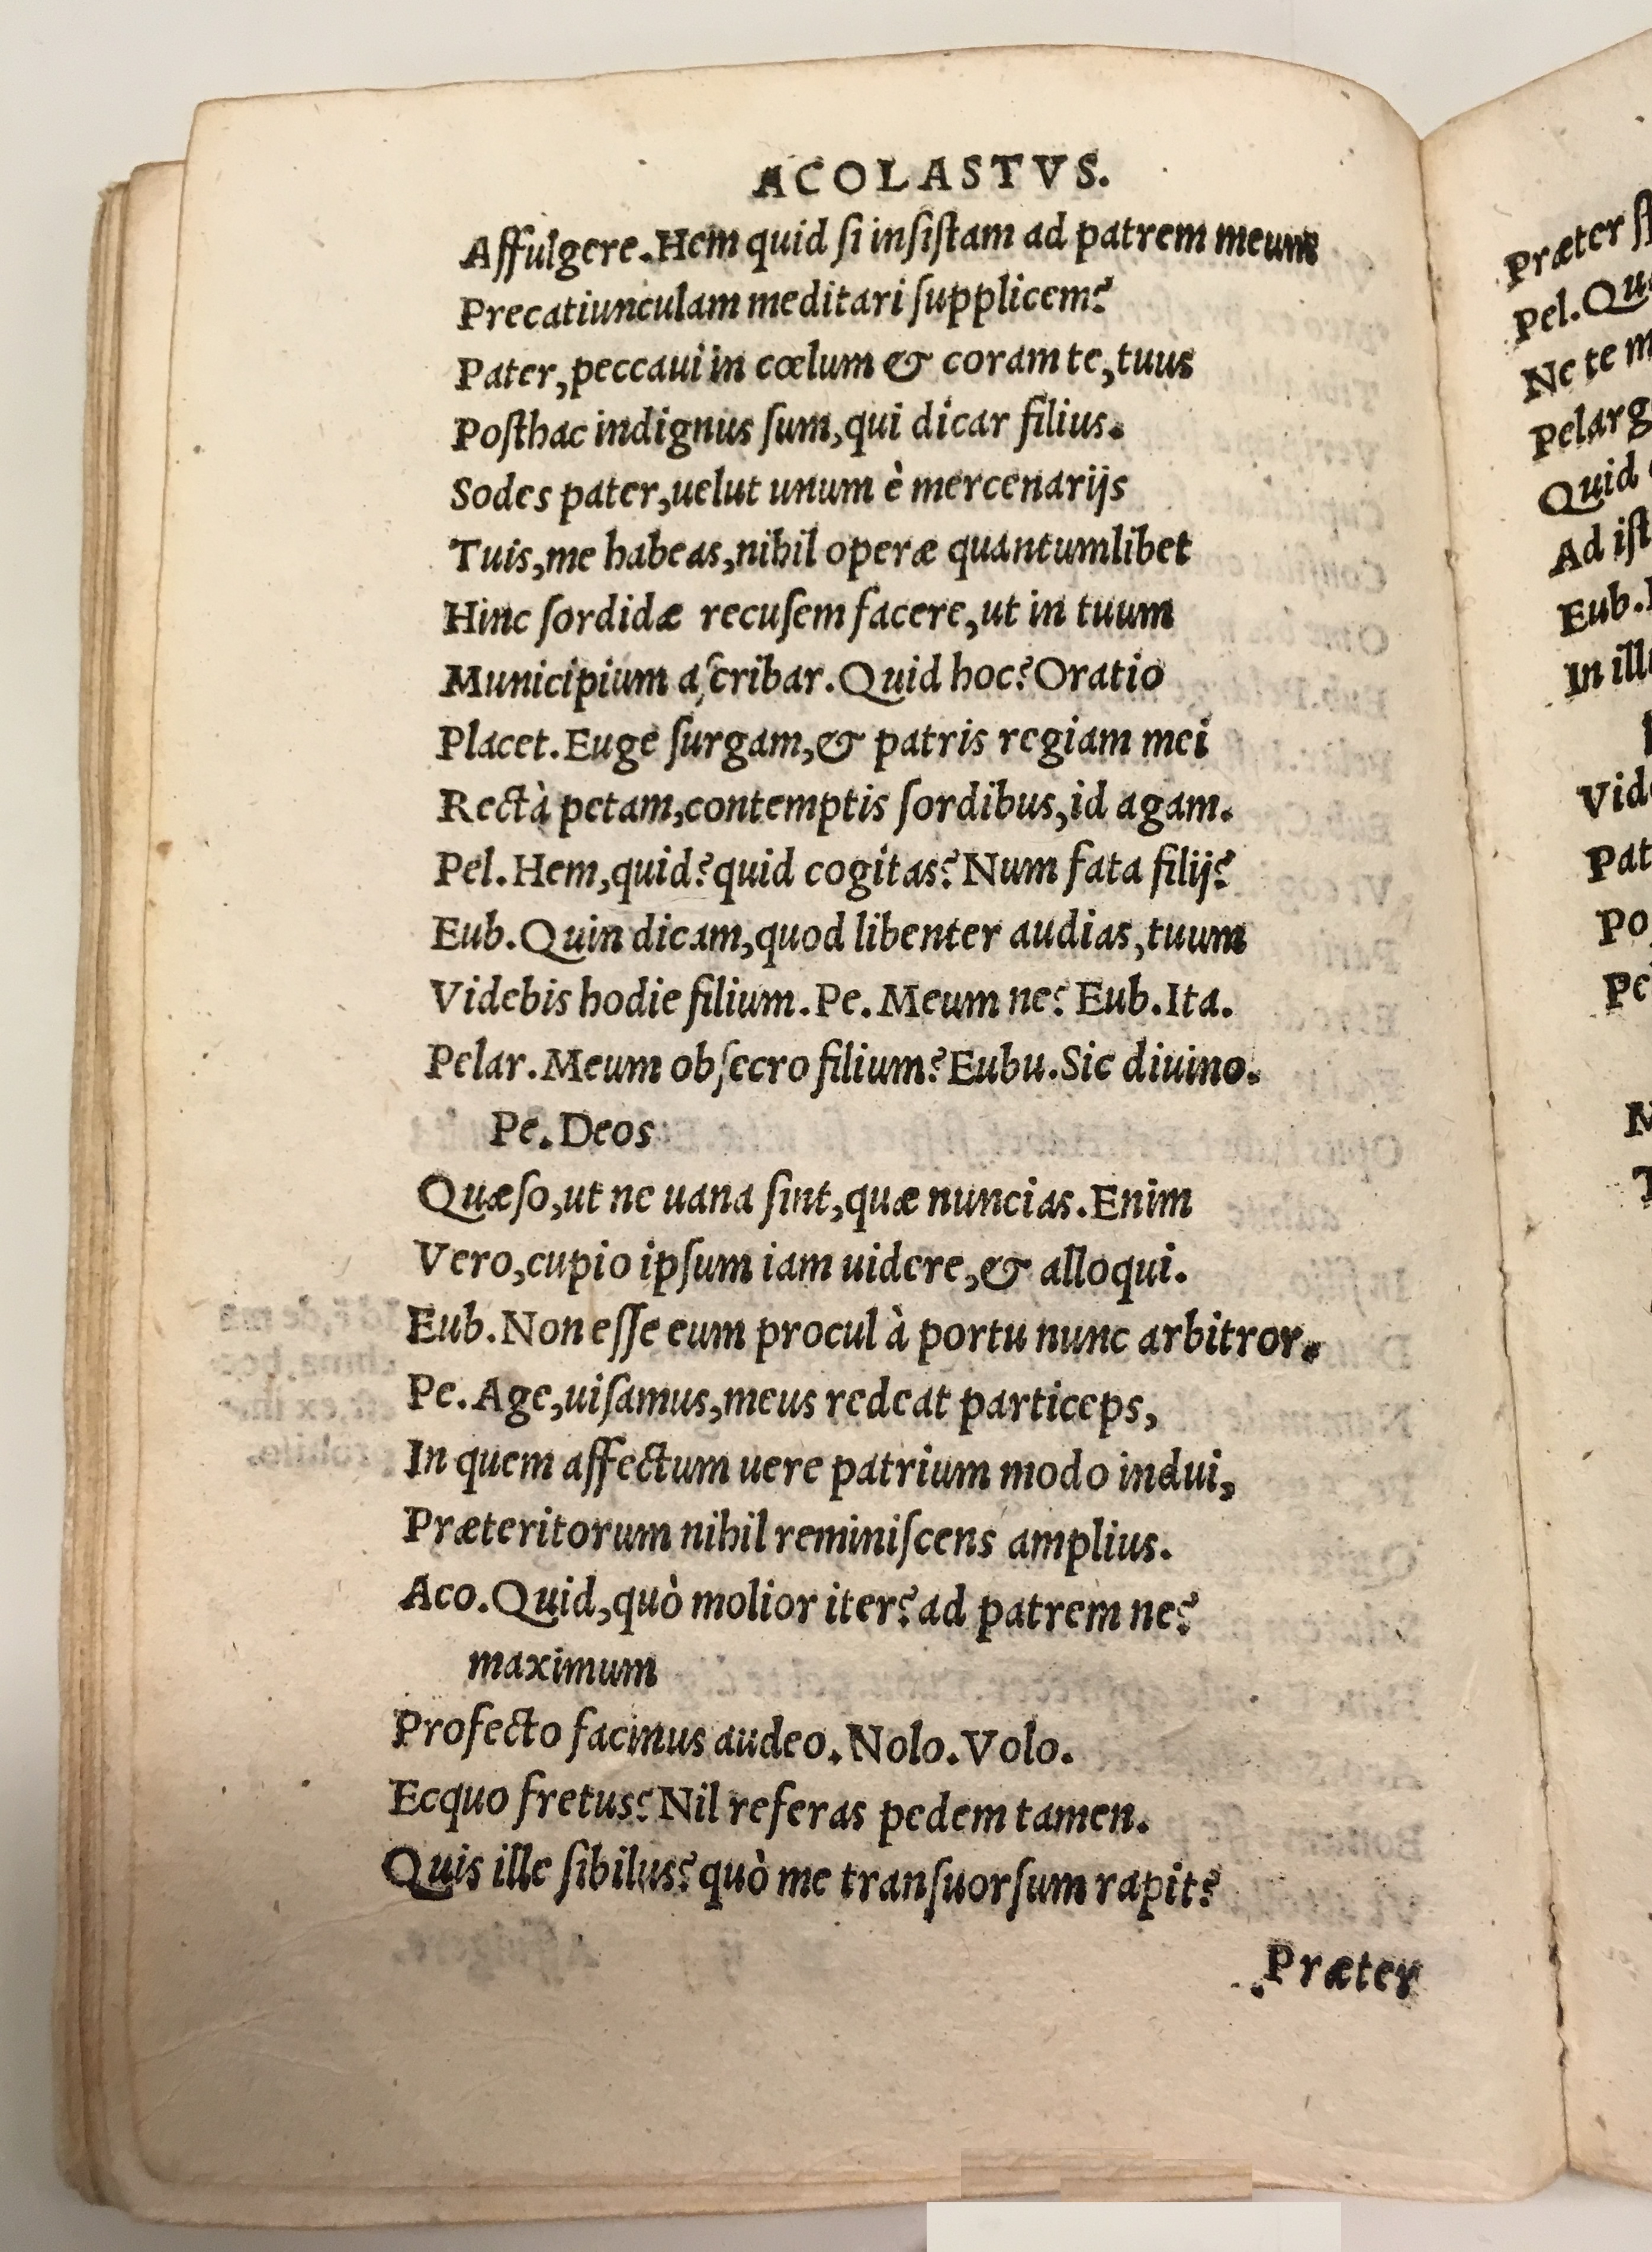 ACOLASTVS.
Affulgere.Hem quid ſi inſiſtam ad patrem meum
Precatiunculam meditari ſupplicem?
Pater,peccaui in cœlum & coram te,tuus
Poſthac indignus ſum,qui dicar filius.
Sodes pater,uelut unum è mercenarijs
Tuis,me habeas,nihil operæ quantumlibet
Hinc ſordidæ recuſem facere,ut in tuum
Municipium aſcribar.Quid hoc?Oratio
Placet.Euge ſurgam,& patris regiam mei
Rectà petam,contemptis ſordibus,id agam.
Pel.Hem,quid?quid cogitas?Num fata filij?
Eub.Quin dicam,quod libenter audias,tuum
Videbis hodie filium.Pe.Meum ne? Eub.Ita.
Pelar.Meum obſecro filium?Eubu.Sic diuino.
Pe.Deos
Quæſo,ut ne uana ſint,quæ nuncias.Enim
Vero,cupio ipſum iam uidere,& alloqui.
Eub.Non eſſe eum procul à portu nunc arbitror.
Pe.Age,uiſamus,meus redeat particeps,
In quem affectum uere patrium modo indui,
Præteritorum nihil reminiſcens amplius.
Aco.Quid,quò molior iter?ad patrem ne?
maximum
Profecto facinus audeo.Nolo.Volo.
Ecquo fretus?Nil referas pedem tamen.
Quis ille ſibilus?quò me tranſuorſum rapit?
Præter
Præter
Pel.
Ne te
Quid
Eub.